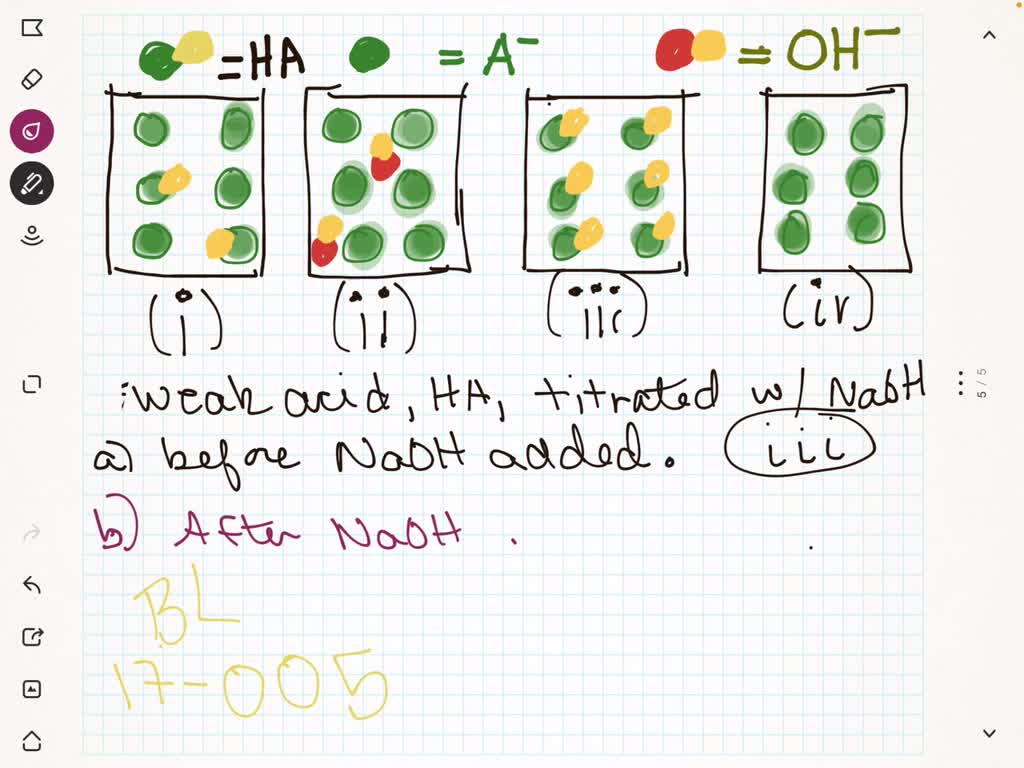 =HA = A⁻ = OH⁻
(i) (ii) (iii) (iv)
weak acid, HA, titrated w/ NaOH
a) before NaOH added. iii
b) After NaOH.
BL
17-005
5 / 5